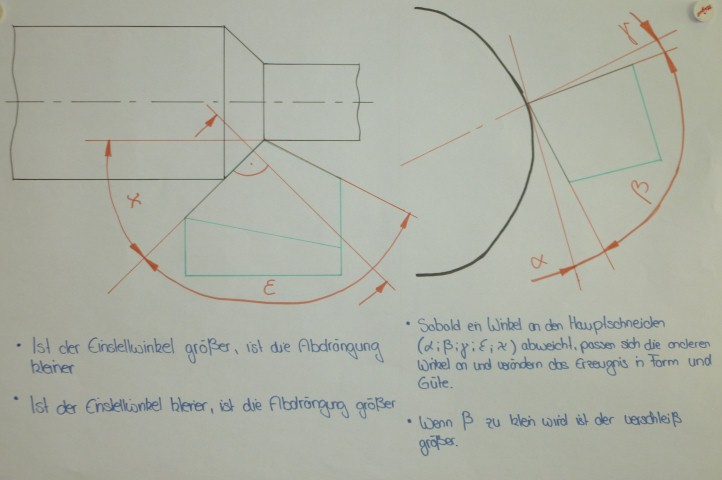 γ
x
ε
β
α
• Ist der Einstellwinkel größer, ist die Abdrängung
kleiner
• Ist der Einstellwinkel kleiner, ist die Abdrängung größer
• Sobald ein Winkel an den Hauptschneiden
(α; β; γ; ε; x) abweicht, passen sich die anderen
Winkel an und verändern das Erzeugnis in Form und
Güte.
• Wenn β zu klein wird ist der verschleiß
größer.